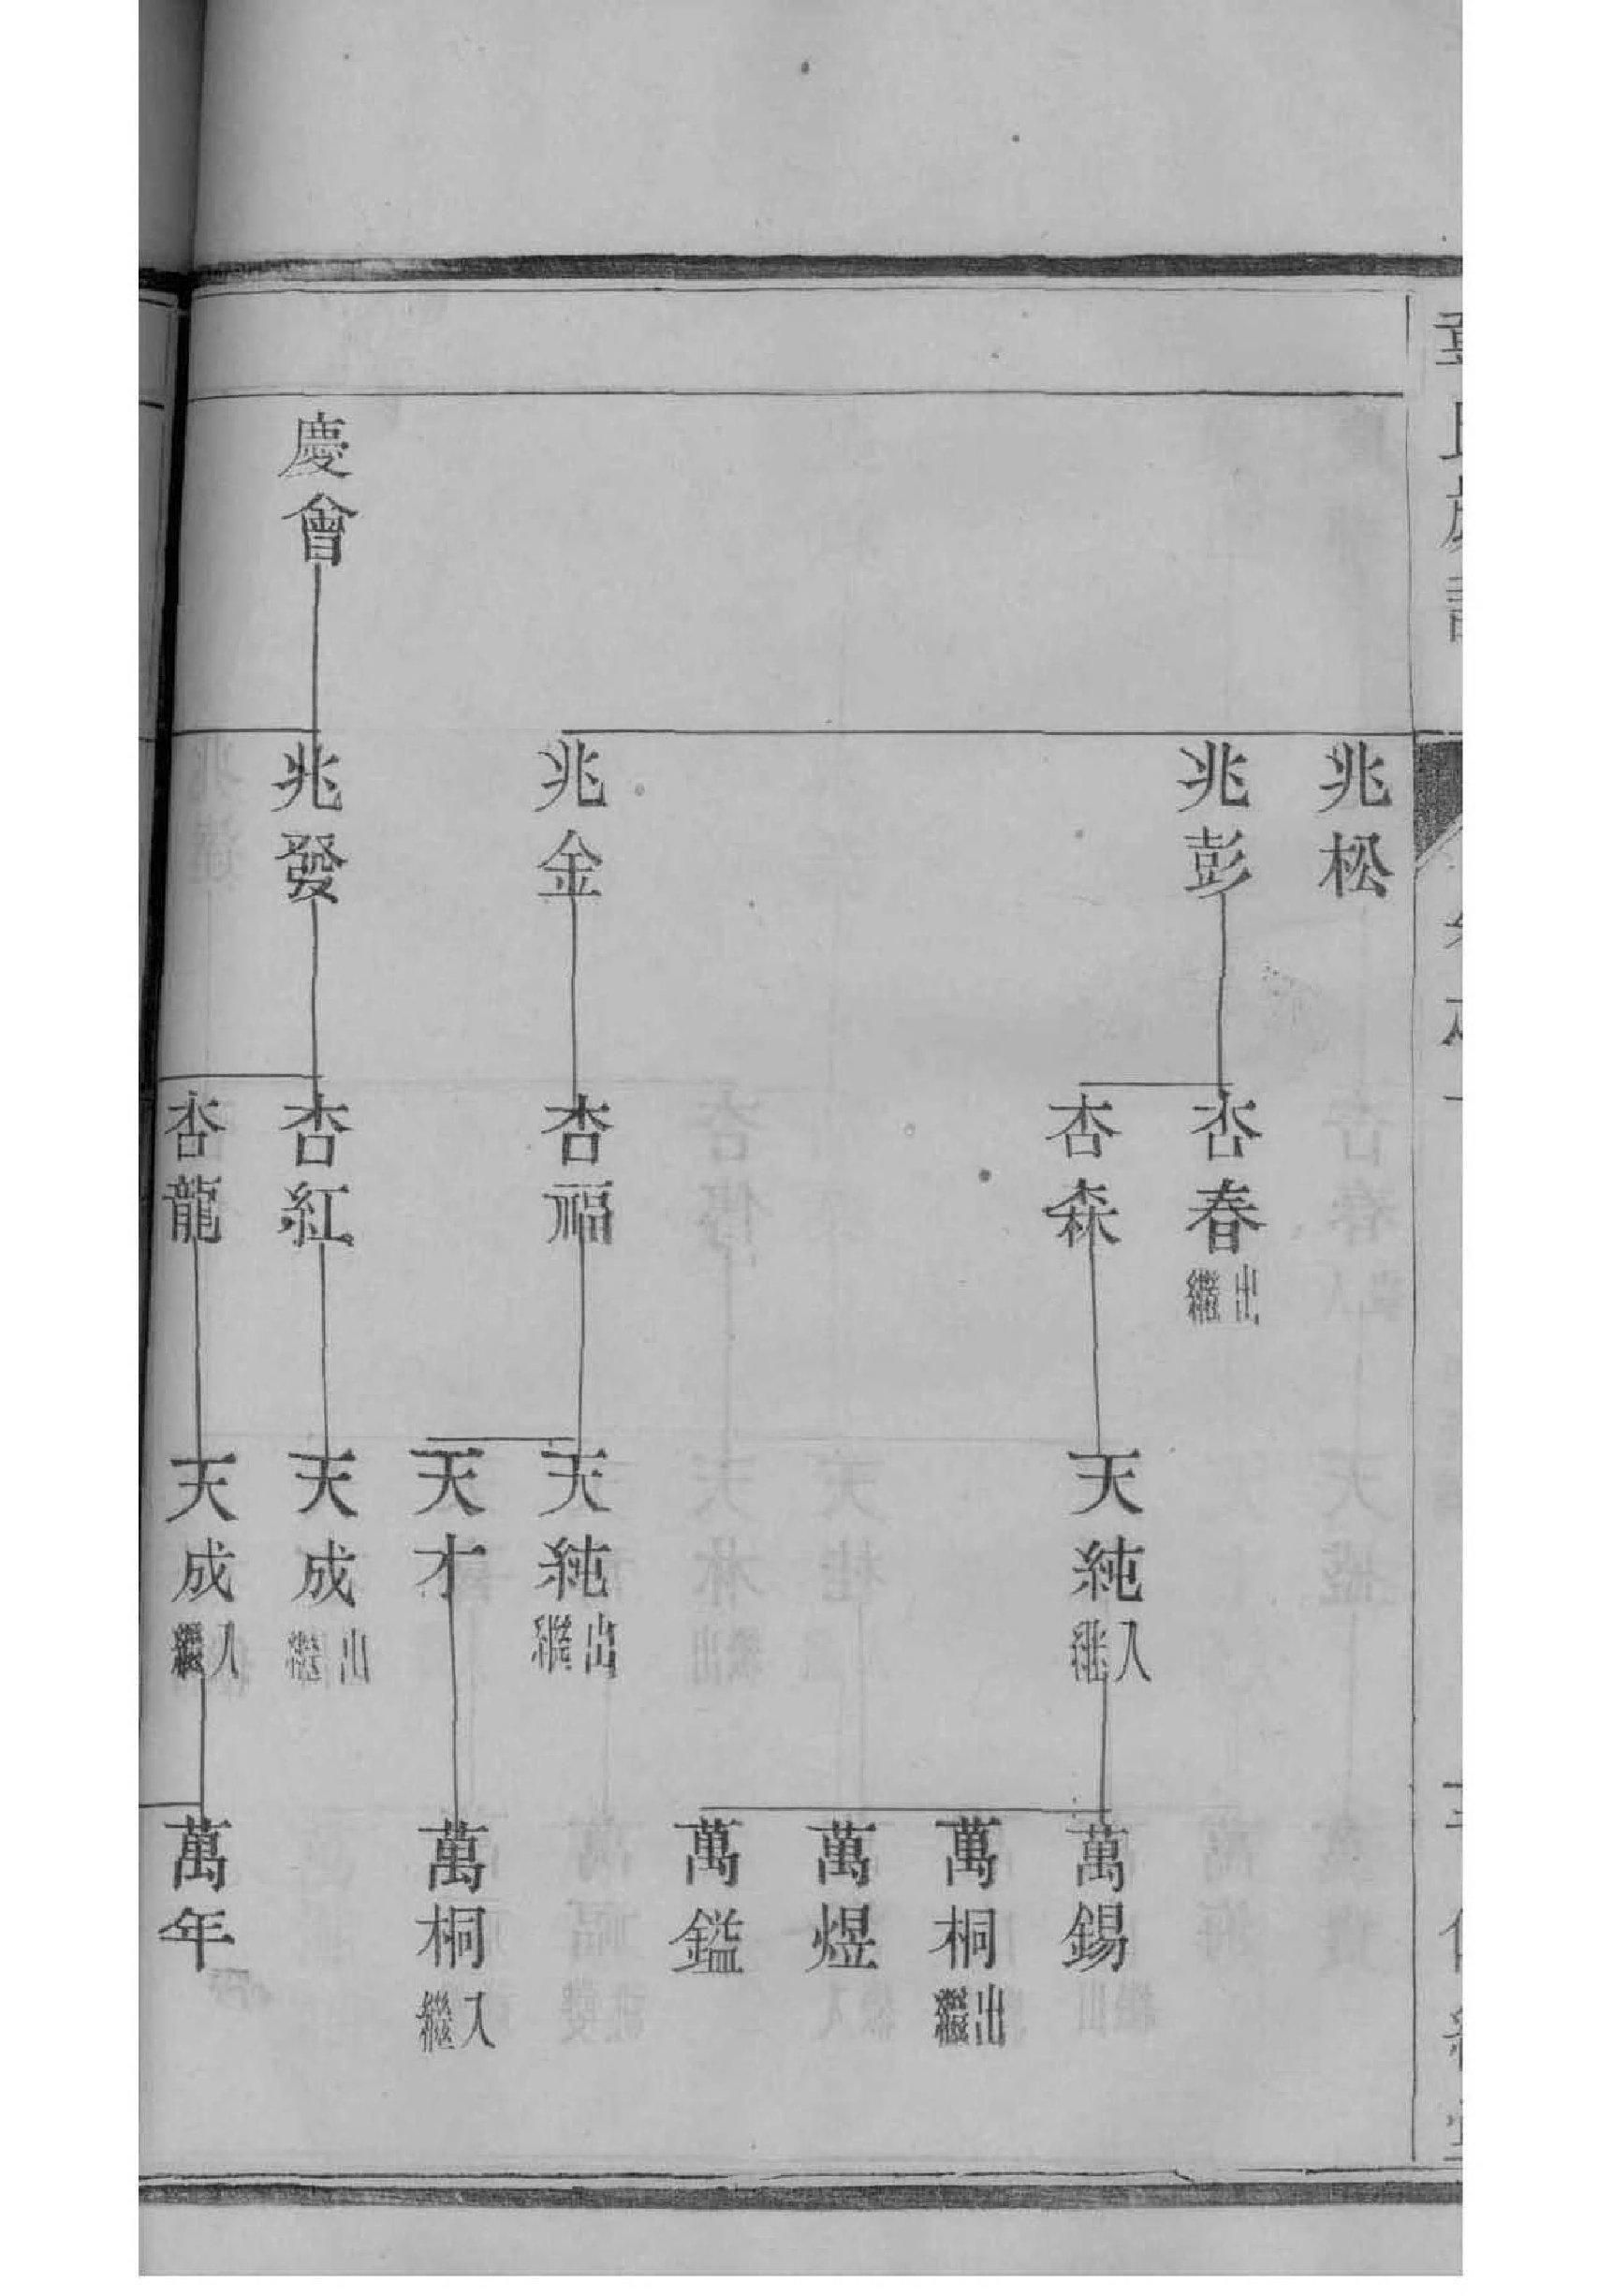 兆松
兆彭
兆金
慶會
兆發
杏春
出繼
杏森
杏福
杏紅
杏龍
天純
入繼
天純
出繼
天才
天成
出繼
天成
入繼
萬錫
萬桐
出繼
萬煜
萬鎰
萬桐
入繼
萬年